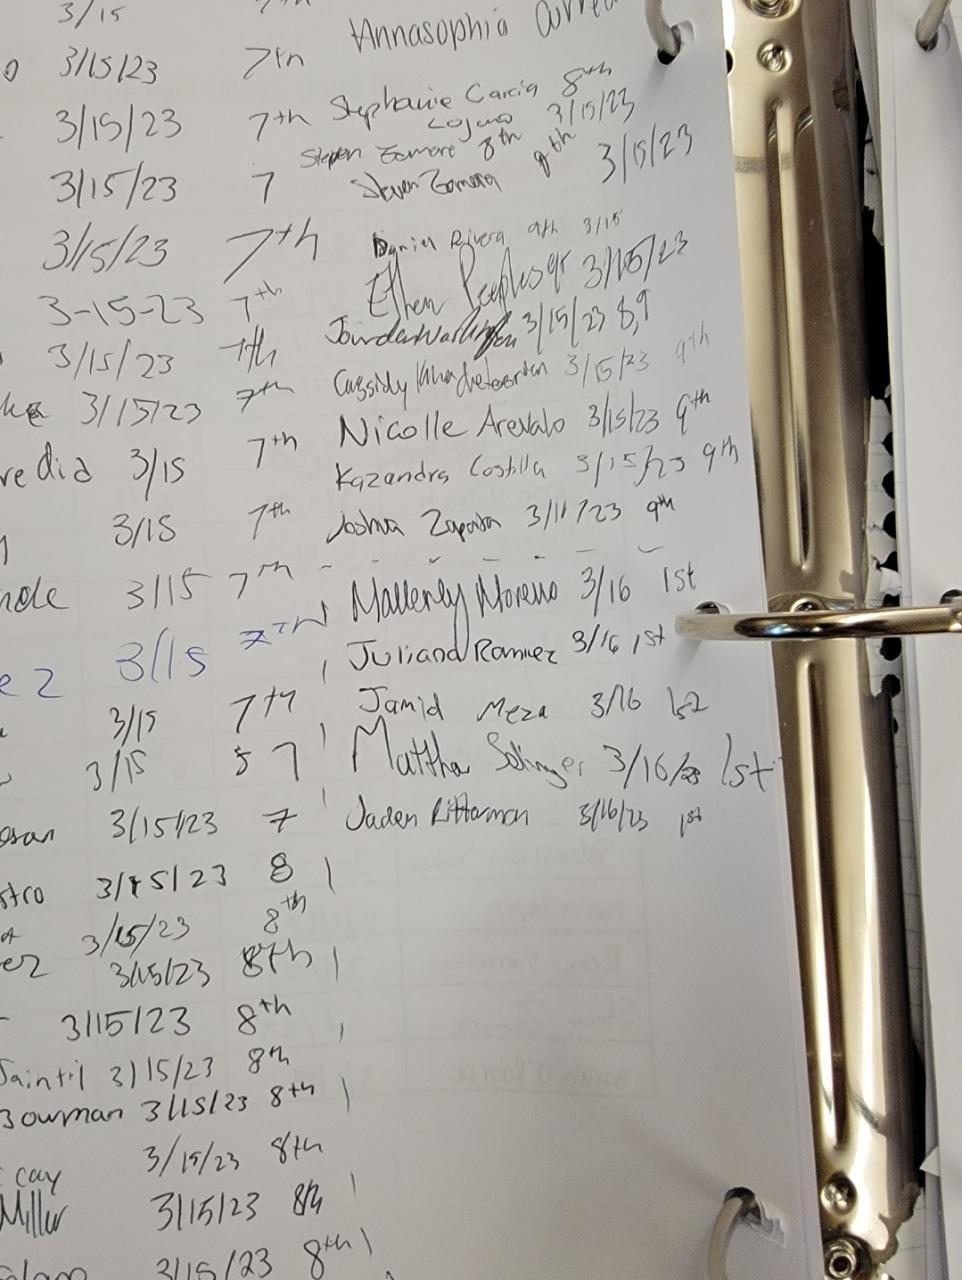 3/15 7th Annasophia
3/15/23 7th
3/15/23 7th Stephanie Garcia 8th
Lozano 3/15/23
3/15/23 7 Steven Zamora 8th
Steven Zamora 9th 3/15/23
3/15/23 7th Daniel Rivera 9th 3/15
3-15-23 7th Ethan Peeples 9r 3/15/23
3/15/23 7th 3/15/23 8,9
3/15/23 7th Cassidy 3/15/23 9th
redia 3/15 7th Nicolle Arevalo 3/15/23 9th
Kazandra Costilla 3/15/23 9th
3/15 7th Joshua Zapata 3/11/23 9th
nde 3/15 7th Mallerly Moreno 3/16 1st
ez 3/15 7TH Juliand Ramirez 3/16 1st
3/15 7th Jamid Meza 3/16 1st
3/15 7 Matthew Solinger 3/16/23 1st
3/15/23 7 Jaden Rittaman 3/16/23 1st
stro 3/15/23 8
3/15/23 8th
ez 3/15/23 8th
3/15/23 8th
Saintil 3/15/23 8th
Bowman 3/15/23 8th
cay 3/15/23 8th
Miller 3/15/23 8th
3/15/23 8th